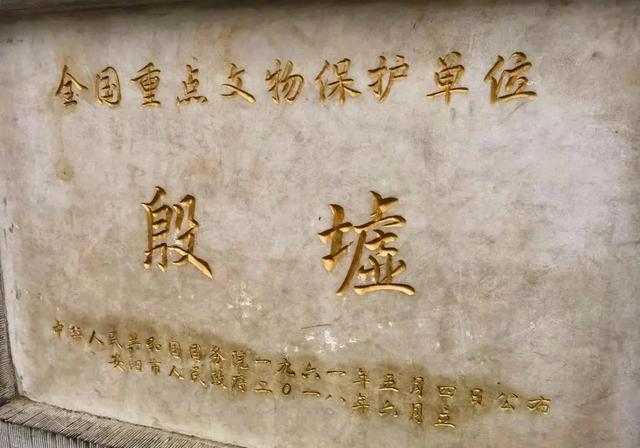 全国重点文物保护单位
殷墟
中华人民共和国国务院一九六一年三月四日公布
安阳市人民政府二〇一八年六月立